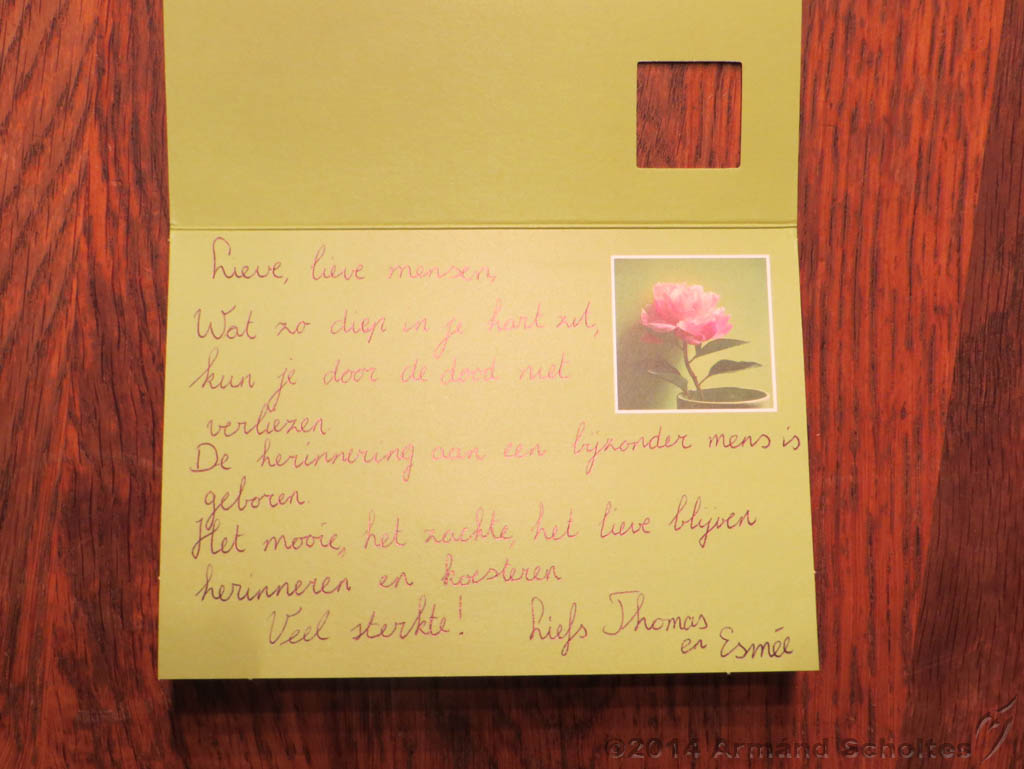 Lieve, lieve mensen,
Wat zo diep in je hart zit,
kun je door de dood niet
verliezen
De herinnering aan een bijzonder mens is
geboren.
Het mooie, het zachte, het lieve blijven
herinneren en koesteren
Veel sterkte! Liefs Thomas
en Esmée
©2014 Armand Scholtes